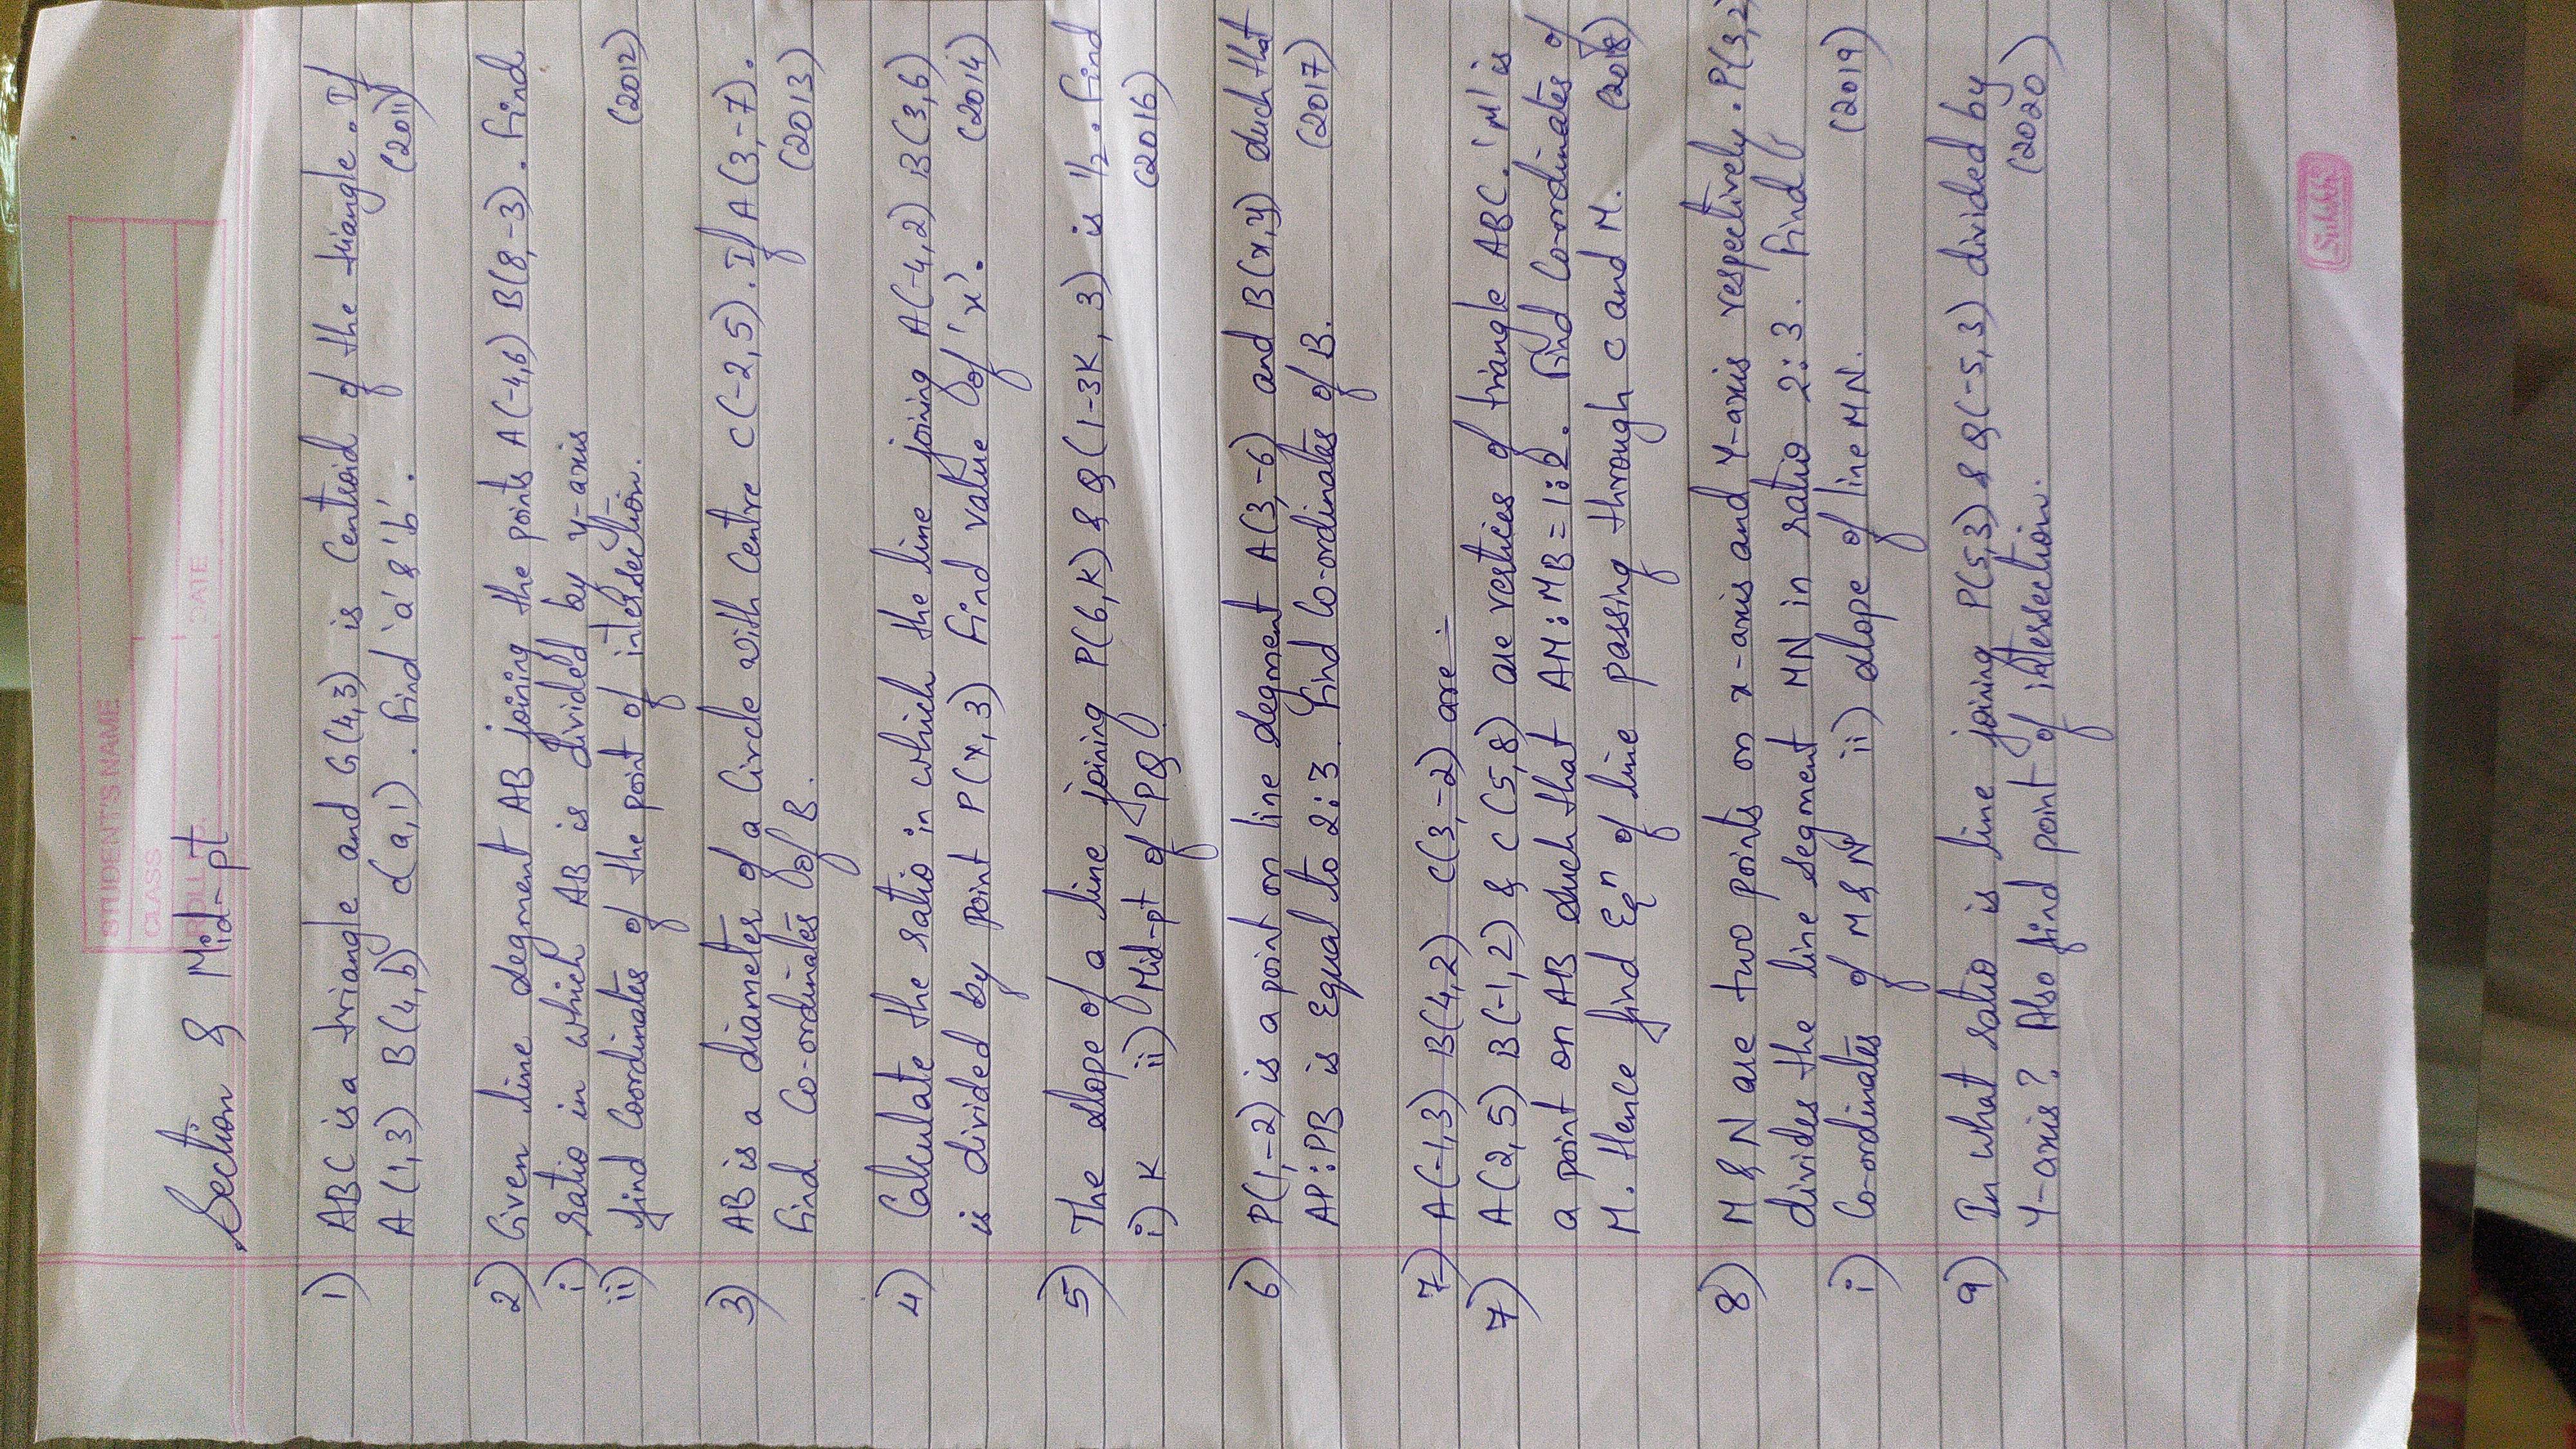 STUDENT'S NAME
CLASS
ROLL NO.
DATE
Section & Mid-pt
1) ABC is a triangle and G(4,3) is Centroid of the triangle. If
A(1,3) B(4,b) d(a,1). Find 'a' & 'b'. (2011)
2) Given line segment AB joining the points A(-4,6) B(8,-3). Find
i) ratio in which AB is divided by Y-axis
ii) find Coordinates of the point of intersection. (2012)
3) AB is a diameter of a Circle with Centre C(-2,5). If A(3,-7).
Find Co-ordinates of B. (2013)
4) Calculate the ratio in which the line joining A(-4,2) B(3,6)
is divided by point P(x,3) Find value of 'x'. (2014)
5) The slope of a line joining P(6,K) & Q(1-3K,3) is 1/2. Find
i) K ii) Mid-pt of PQ. (2016)
6) P(1,-2) is a point on line segment A(3,-6) and B(x,y) such that
AP:PB is Equal to 2:3. Find Co-ordinates of B. (2017)
7) A(-1,3) B(4,2) C(3,-2) are :-
7) A(2,5) B(-1,2) & C(5,8) are vertices of triangle ABC. 'M' is
a point on AB such that AM:MB=1:2. Find Co-ordinates of
M. Hence find Eqn of line passing through C and M. (2018)
8) M & N are two points on x-axis and Y-axis respectively. P(3,2)
divides the line segment MN in ratio 2:3. Find
i) Co-ordinates of M & N ii) slope of line MN. (2019)
9) In what ratio is line joining P(5,3) & Q(-5,3) divided by
Y-axis? Also find point of intersection. (2020)
Sulekh